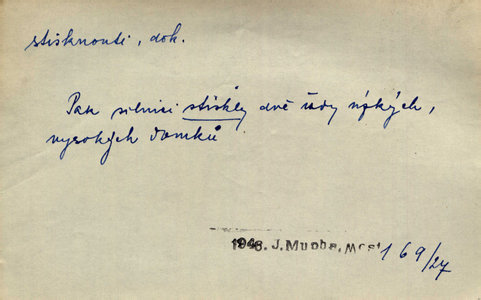 stisknouti, dok.
Pak silnici stiskly dvě řady úzkých,
vysokých domků
1946. J. Mucha, Most
169/27